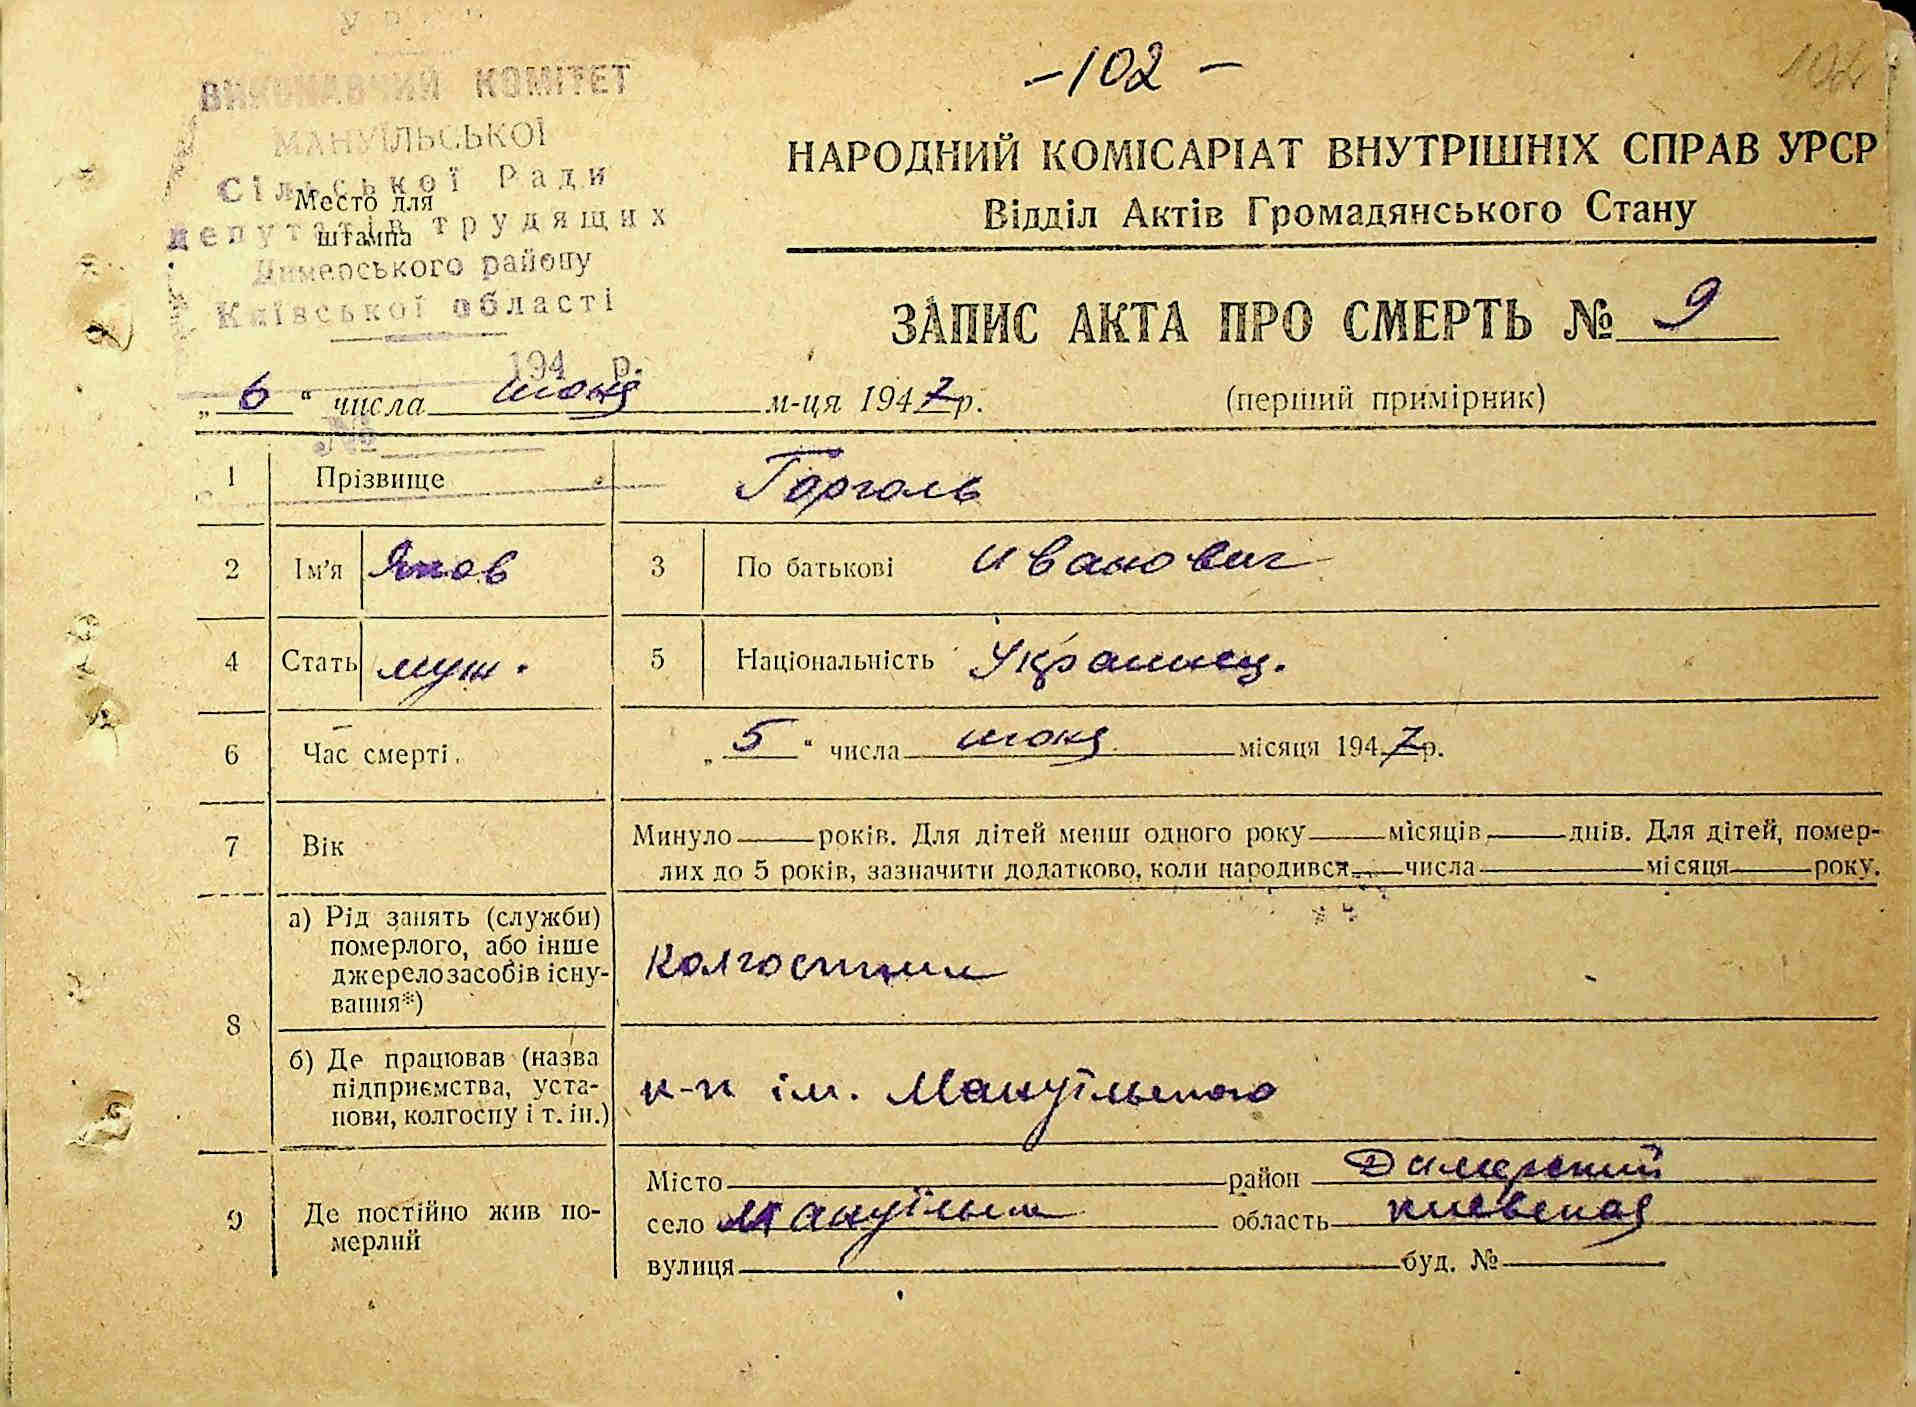 УРСР
ВИКОНАВЧИЙ КОМІТЕТ
МАНУЇЛЬСЬКОЇ
Сільської Ради
депутатів трудящих
Димерського району
Київської області
194 р.
№
Место для
штампа
-102-
НАРОДНИЙ КОМІСАРІАТ ВНУТРІШНІХ СПРАВ УРСР
Відділ Актів Громадянського Стану
ЗАПИС АКТА ПРО СМЕРТЬ № 9
„6“ числа июня м-ця 1947 р.
(перший примірник)
1 Прізвище Горголь
2 Ім'я Яков 3 По батькові Иванович
4 Стать муж. 5 Національність Украинец.
6 Час смерті. „5“ числа июня місяця 1947 р.
7 Вік Минуло років. Для дітей менш одного року місяців днів. Для дітей, помер-
лих до 5 років, зазначити додатково, коли народився числа місяця року.
8 а) Рід занять (служби)
померлого, або інше
джерело засобів існу-
вання*)
Колгоспник
б) Де працював (назва
підприємства, уста-
нови, колгоспу і т. ін.)
к-п ім. Мануїльского
9 Де постійно жив по-
мерлий
Місто район Димерский
село Мануїльск область киевская
вулиця буд. №